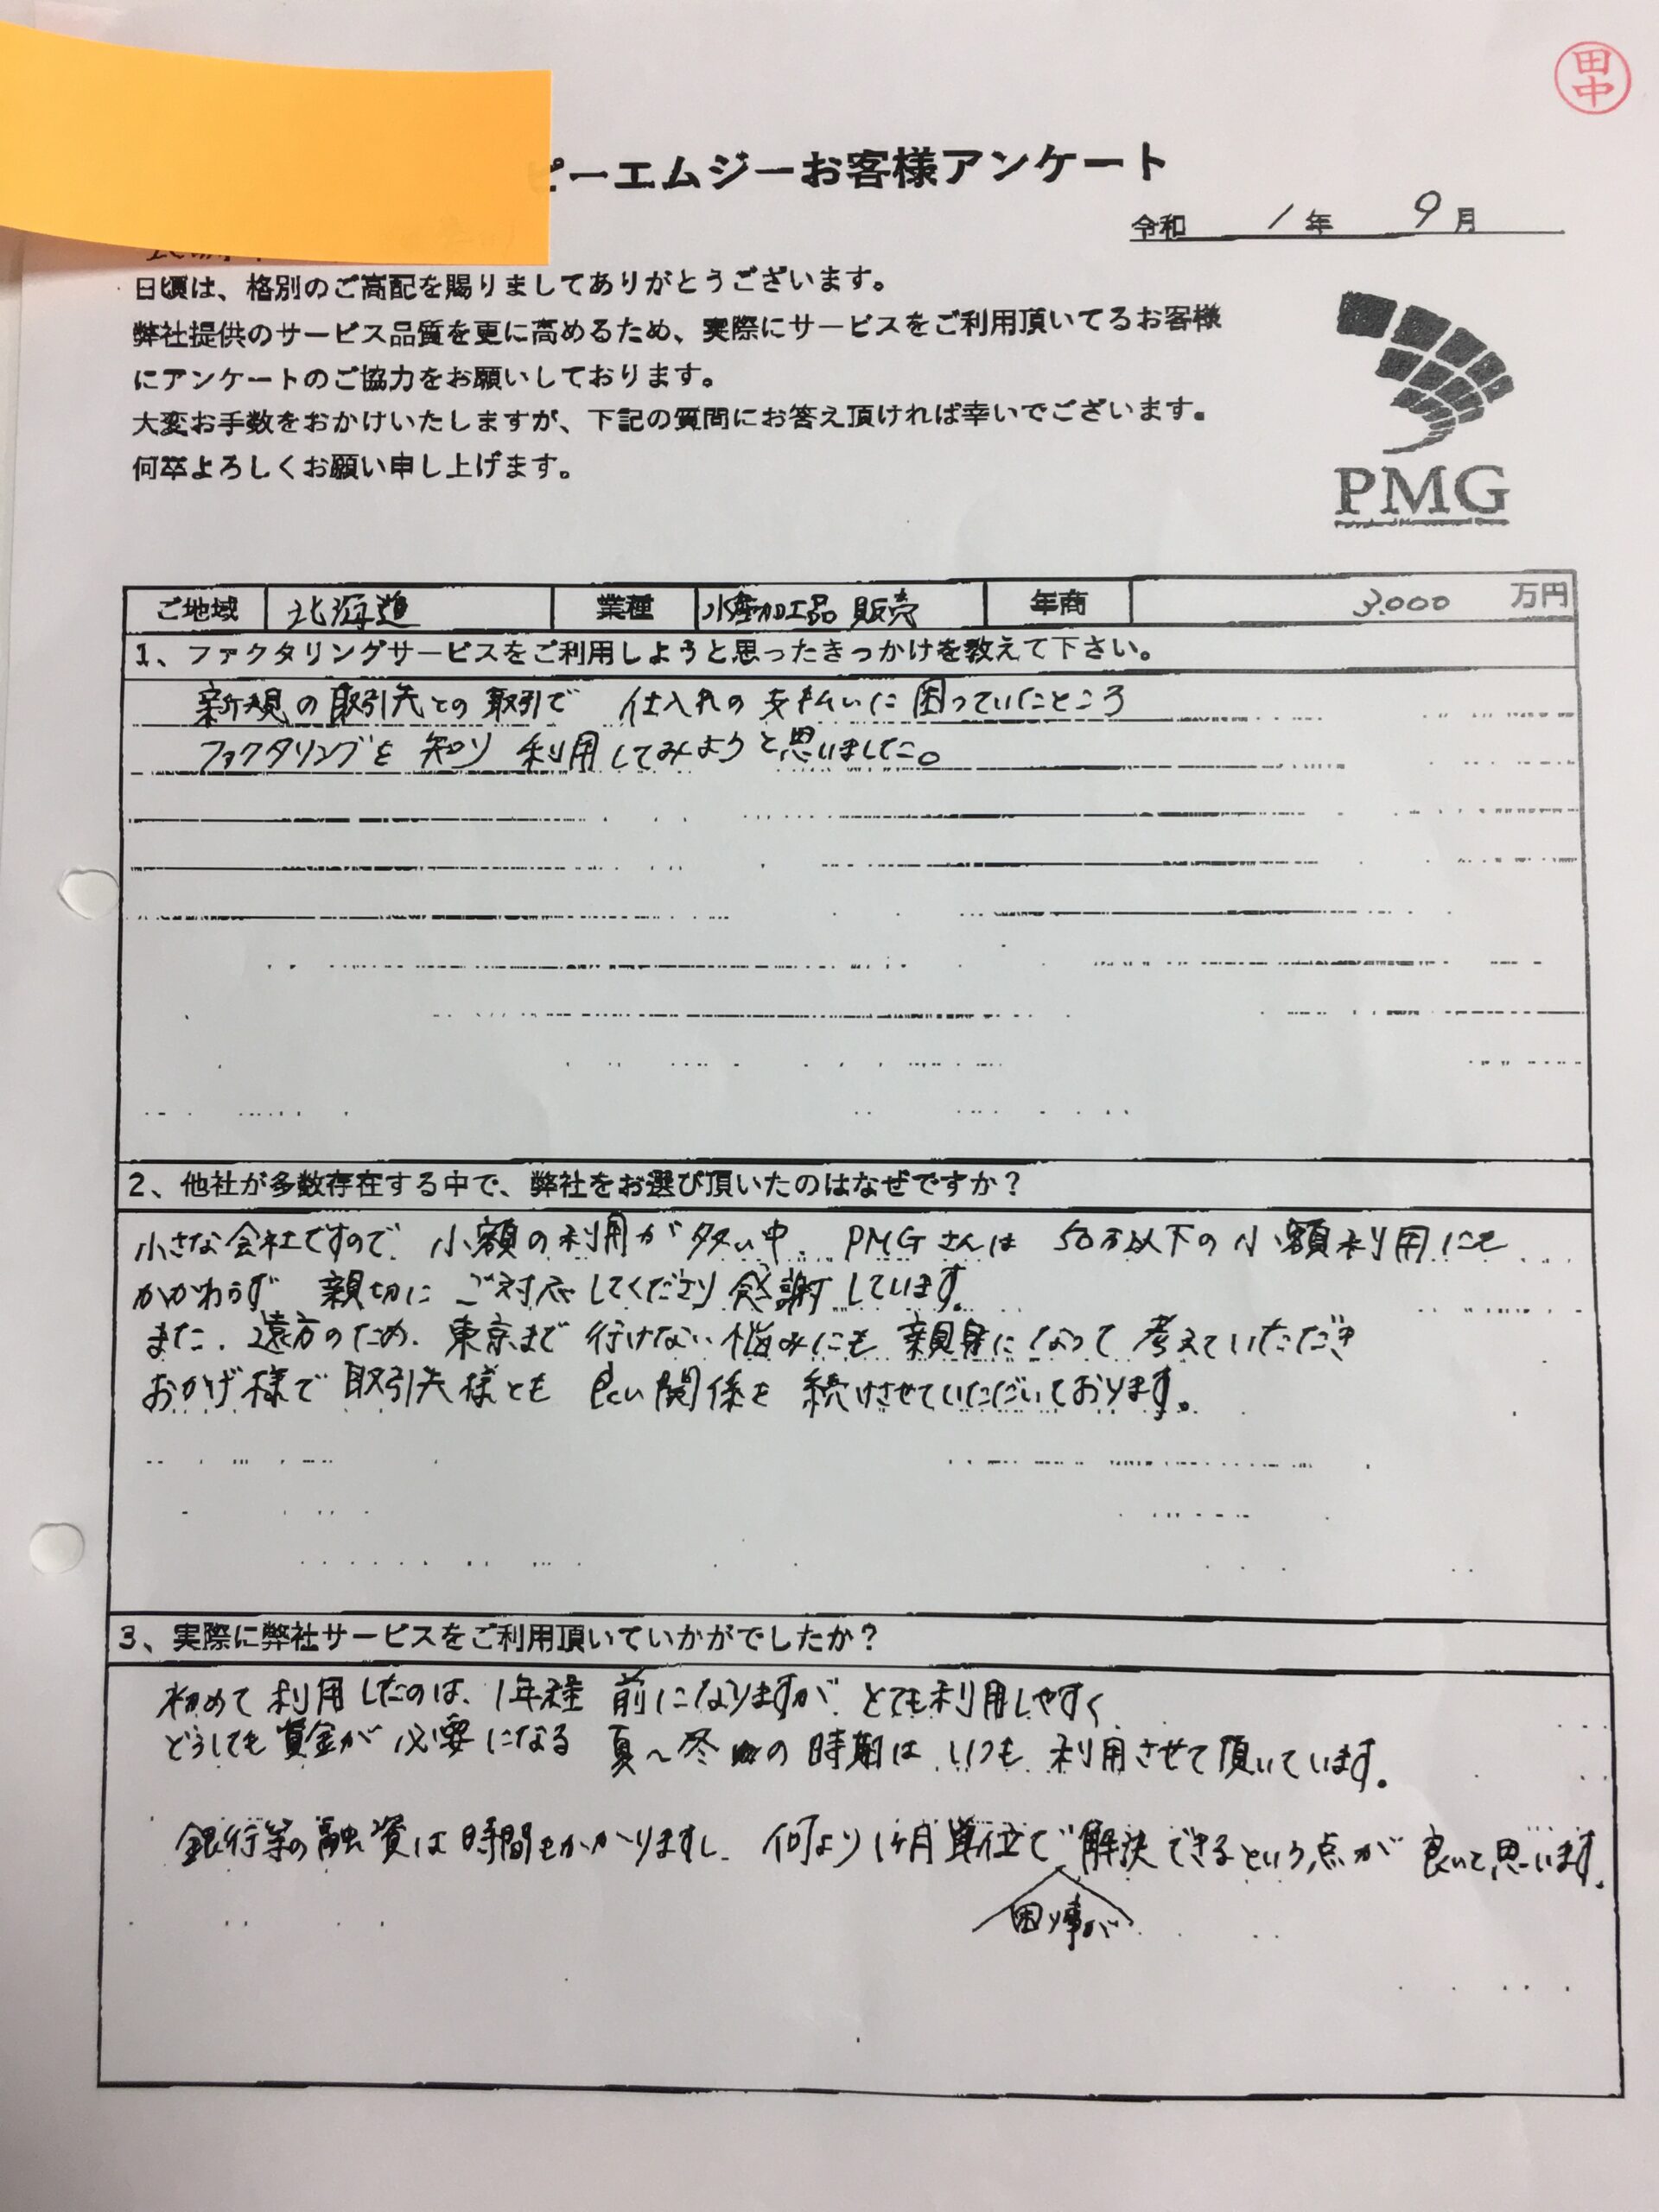 田中
ピーエムジーお客様アンケート
令和 1年 9月
日頃は、格別のご高配を賜りましてありがとうございます。
弊社提供のサービス品質を更に高めるため、実際にサービスをご利用頂いてるお客様
にアンケートのご協力をお願いしております。
大変お手数をおかけいたしますが、下記の質問にお答え頂ければ幸いでございます。
何卒よろしくお願い申し上げます。
PMG
ご地域 北海道 業種 水産加工品 販売 年商 3.000 万円
1、ファクタリングサービスをご利用しようと思ったきっかけを教えて下さい。
新規の取引先との取引で 仕入れの支払いに困っていたところ
ファクタリングを知り 利用してみようと思いました。
2、他社が多数存在する中で、弊社をお選び頂いたのはなぜですか？
小さな会社ですので、小額の利用が多い中、PMGさんは 50万以下の小額利用にも
かかわらず 親切に ご対応してくださり感謝しています。
また、遠方のため、東京まで行けない悩みにも親身になって考えていただき
おかげ様で取引先様とも 良い関係を 続けさせていただいております。
3、実際に弊社サービスをご利用頂いていかがでしたか？
初めて利用したのは、1年程前になりますが、とても利用しやすく
どうしても資金が必要になる 夏～冬の時期は いつも利用させて頂いています。
銀行等の融資は時間もかかりますし、何より1ヶ月単位で解決できるという点が良いと思います。
困り事が